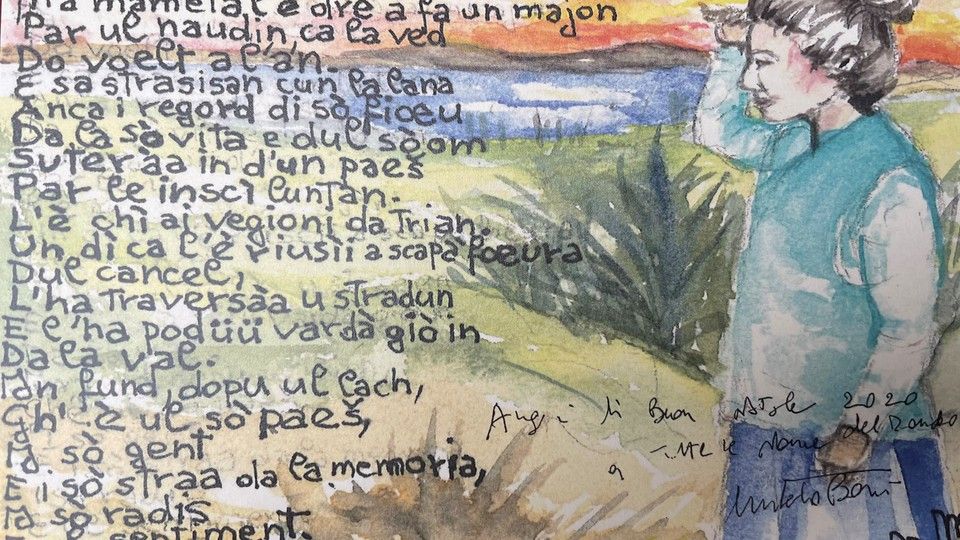 mamelat e dre a fa un majon
Par ul naudin, ca la ved
Do voelt al'an.
E sa strasisan cun la lana
Anca i regord di sò fioeu
Da la sò vita e dul sò om
Suteràa in d'un paes
Par le inscì luntan.
L'è chì ai vegioni da Trian.
Un dì ca l'è riusii a scapà foeura
Dul cancel,
L'ha traversàa u stradun
E l'ha podüü vardà giò in
Da la val.
In fund, dopu ul lach,
Gh'è ul sò paes,
La sò gent
E i sò straa ola la memoria,
La sò radis
sentiment.
Auguri di Buon Natale 2020
a tutte le donne del mondo